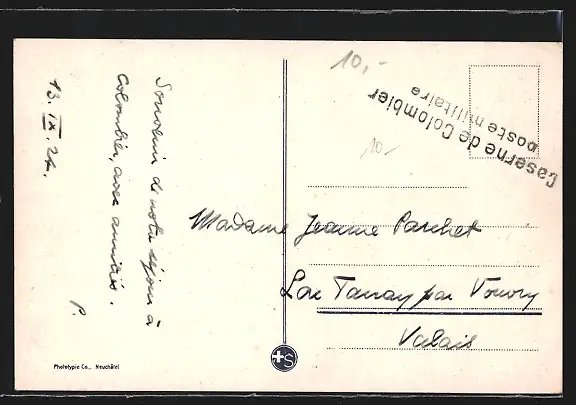 Souvenir de notre séjour à
Colombier, avec amitiés.
P.
13. IX. 24.
10,-
10.-
Caserne de Colombier
poste militaire
Madame Jeanne Parchet
Lac Tanay par Vouvry
Valais
Phototypie Co., Neuchâtel
S